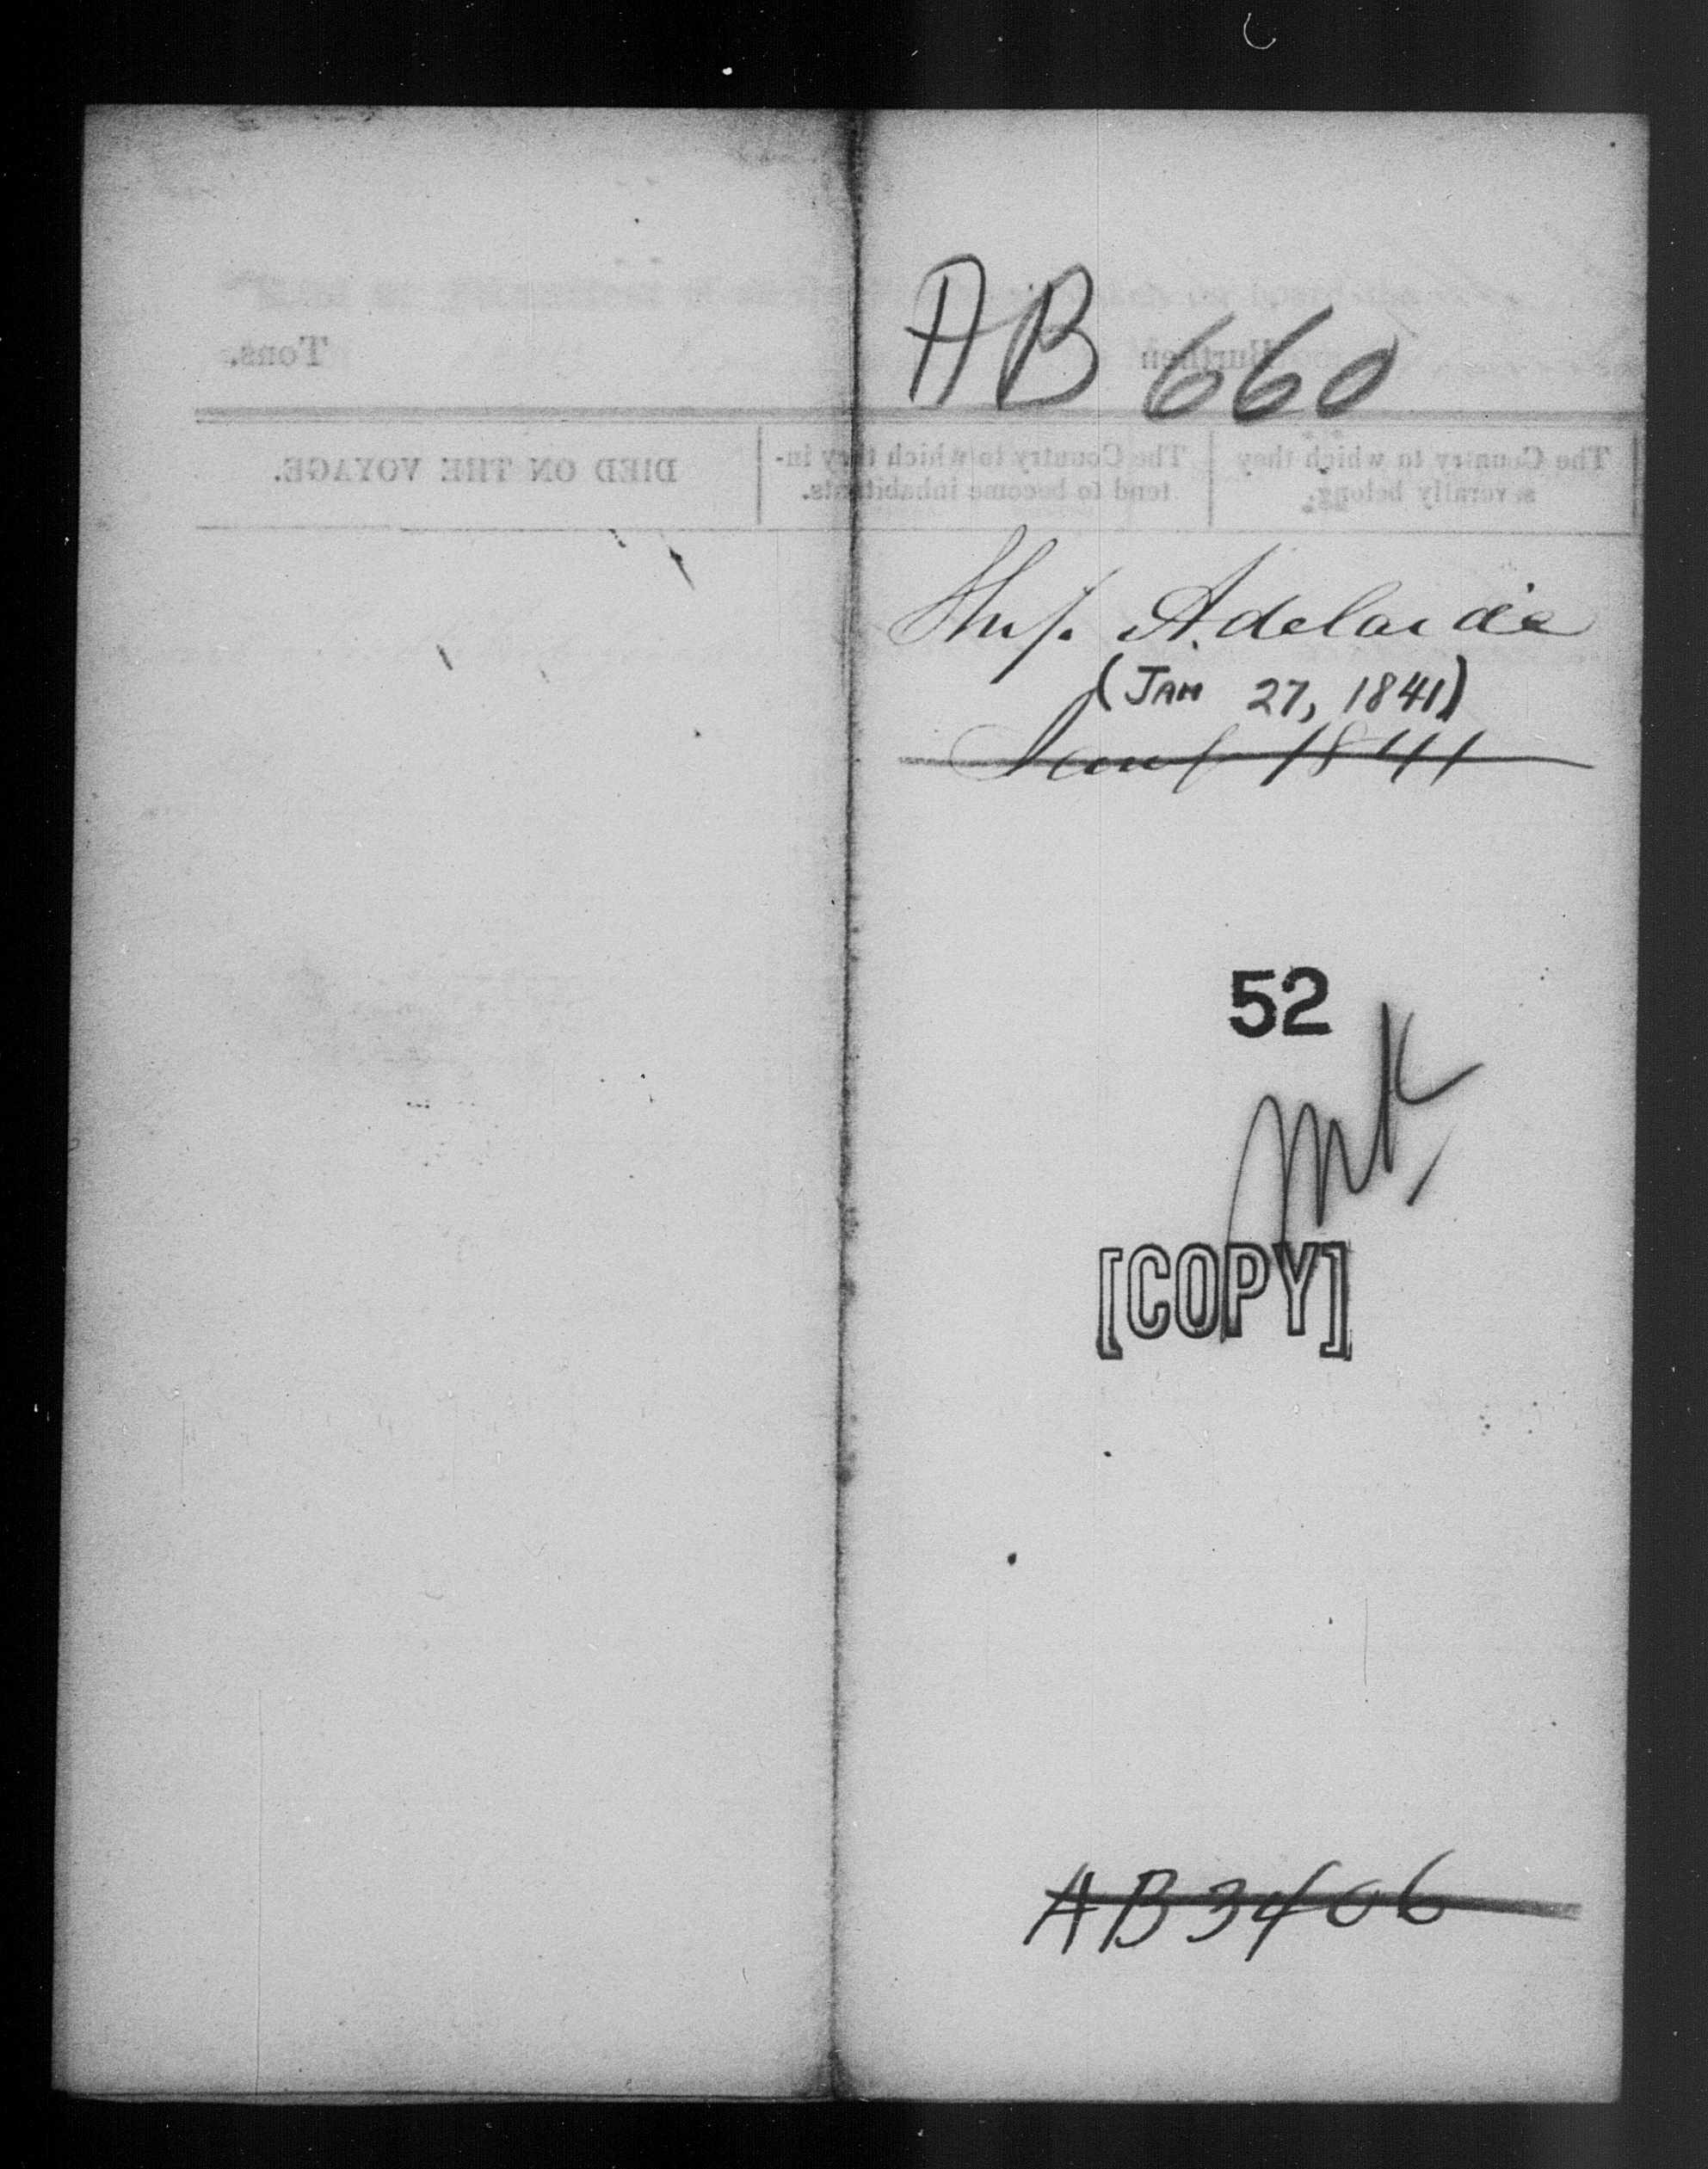 AB 660
Tons.
Burthen
DIED ON THE VOYAGE.
The Country to which they in-
tend to become inhabitants.
The Country to which they
severally belong.
Ship Adelaide
(JAN 27, 1841)
1841
52
MK
[COPY]
AB 3406